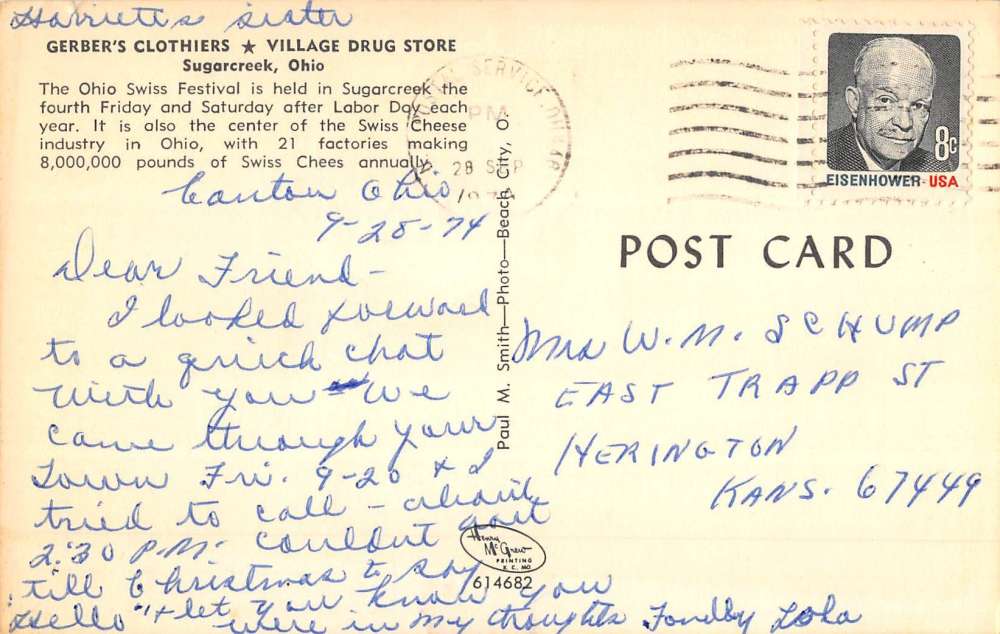 Harriette's sister
GERBER'S CLOTHIERS ★ VILLAGE DRUG STORE
Sugarcreek, Ohio
The Ohio Swiss Festival is held in Sugarcreek the
fourth Friday and Saturday after Labor Day each
year. It is also the center of the Swiss Cheese
industry in Ohio, with 21 factories making
8,000,000 pounds of Swiss Chees annually.
Canton Ohio
9-28-74
Dear Friend-
I looked forward
to a quick chat
with you - we
came through your
town Fri. 9-20 & I
tried to call - about
2:30 P.M. couldnt wait
till Christmas to say
"Hello" & let you know you
were in my thoughts Fondly
Paul M. Smith—Photo—Beach City, O.
Henry
McGrew
PRINTING
K. C. MO
614682
POSTAL SERVICE, OH
PM
28 SEP
EISENHOWER·USA
8c
POST CARD
Mrs W. M. SCHUMP
EAST TRAPP ST
HERINGTON
KANS. 67449